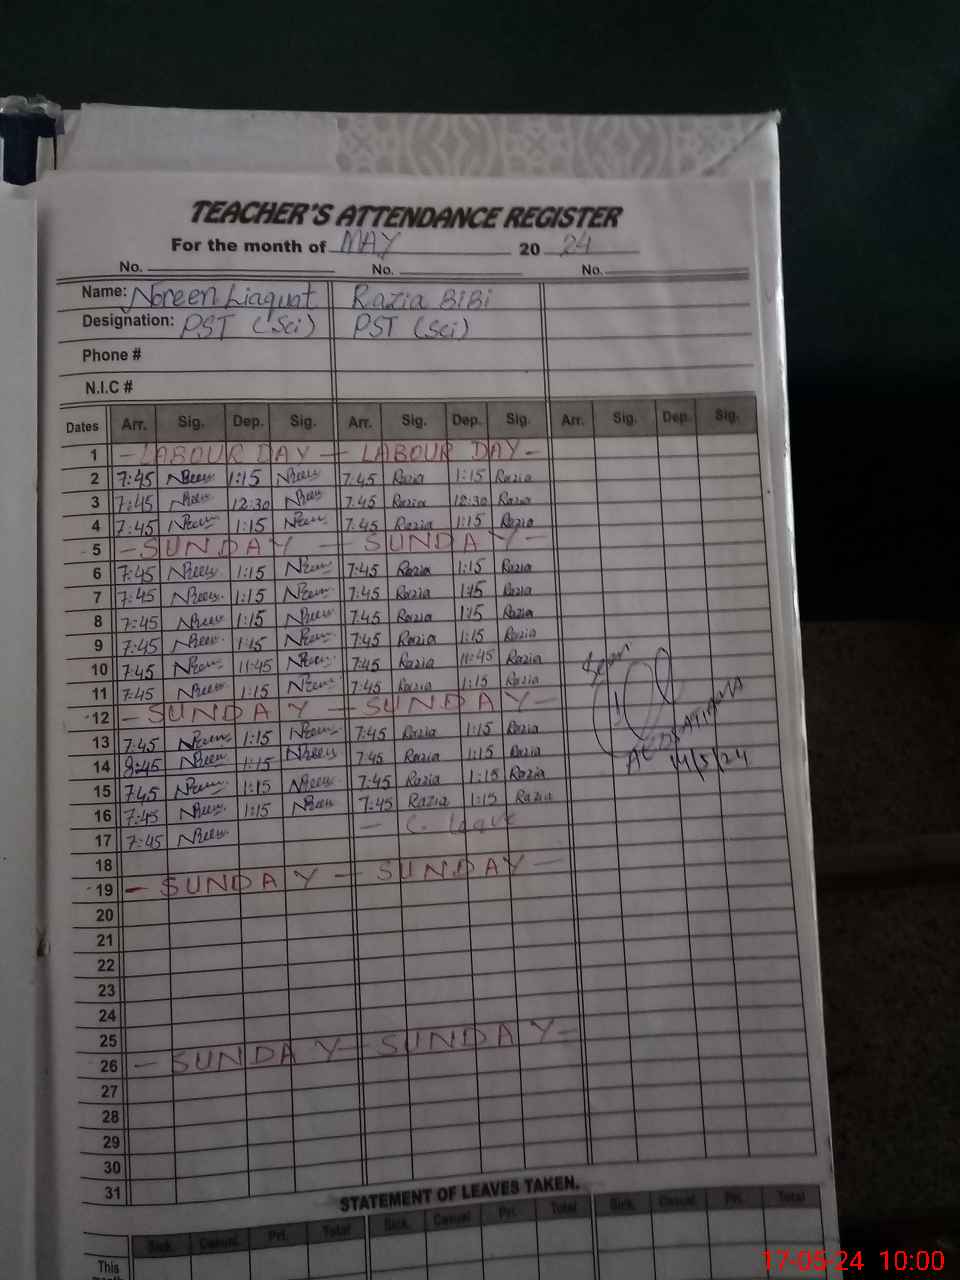 TEACHER'S ATTENDANCE REGISTER
For the month of MAY 2024
No. No. No.
Name: Noreen Liaquat Razia BiBi
Designation: PST (Sci) PST (Sci)
Phone #
N.I.C #
Dates Arr. Sig. Dep. Sig. Arr. Sig. Dep. Sig. Arr. Sig. Dep. Sig.
1 - LABOUR DAY - LABOUR DAY -
2 7:45 1:15 7:45 Razia 1:15 Razia
3 7:45 12:30 7:45 Razia 12:30 Razia
4 7:45 1:15 7:45 Razia 1:15 Razia
5 - SUNDAY - SUNDAY -
6 7:45 1:15 7:45 Razia 1:15 Razia
7 7:45 1:15 7:45 Razia 1:15 Razia
8 7:45 1:15 7:45 Razia 1:15 Razia
9 7:45 1:15 7:45 Razia 1:15 Razia
10 7:45 11:45 7:45 Razia 11:45 Razia
11 7:45 1:15 7:45 Razia 1:15 Razia
12 - SUNDAY - SUNDAY -
13 7:45 1:15 7:45 Razia 1:15 Razia
14 1:15 7:45 Razia 1:15 Razia
15 7:45 1:15 7:45 Razia 1:15 Razia
16 7:45 1:15 7:45 Razia 1:15 Razia
17 7:45 - C. leave
18
19 - SUNDAY - SUNDAY -
20
21
22
23
24
25
26 - SUNDAY - SUNDAY -
27
28
29
30
31
STATEMENT OF LEAVES TAKEN.
Sick. Casual Pvt. Total Sick. Casual Pvt. Total Sick. Casual Pvt. Total
This
17-05-24 10:00